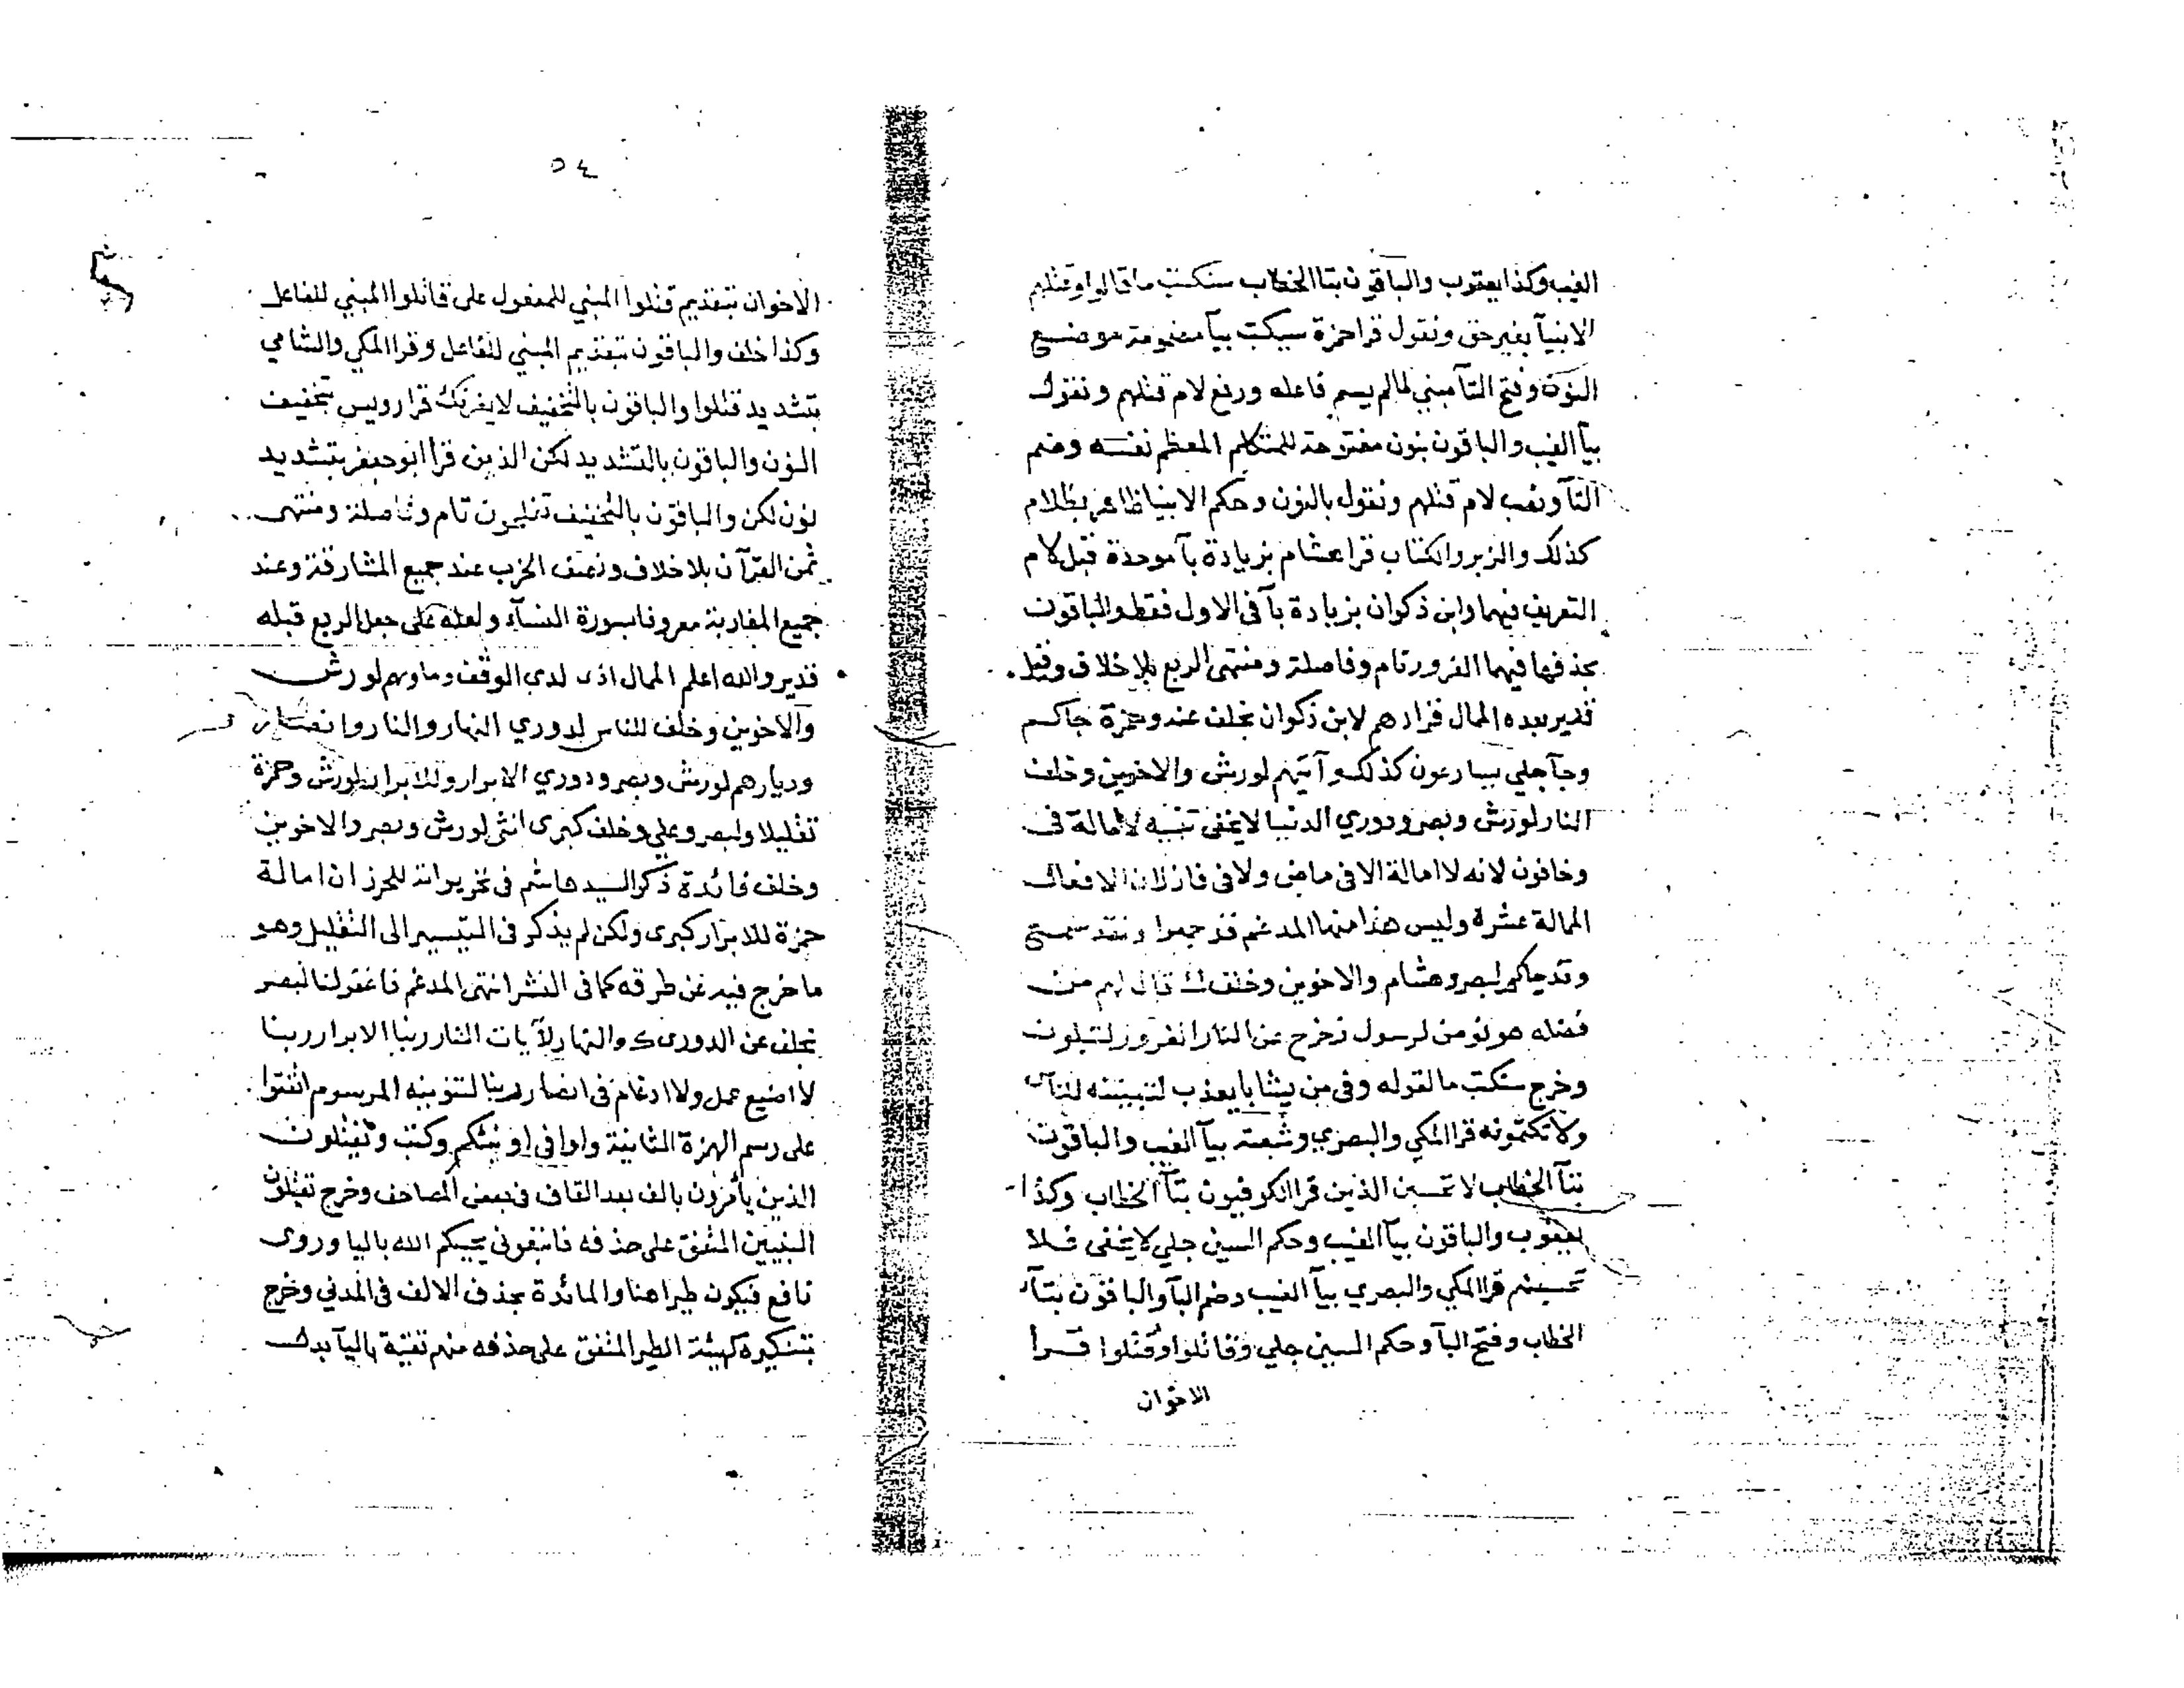 الغيب وكذا يعقوب والباقون بتا الخطاب سنكتب ما قالوا وقتلهم
الانبيآ بغير حق ونقول قرا حمزة سيكتب بيآ مضمومة موضع
النون وفتح التآ مبني لما لم يسم فاعله ورفع لام قتلهم ونقول
بيآ الغيب والباقون بنون مفتوحة للمتكلم المعظم نفسه وضم
التآ ونصب لام قتلهم ونقول بالنون وحكم الانبيا ظاهر بظلام
كذلك والزبر والكتاب قرا هشام بزيادة بآ موحدة قبل لام
التعريف فيهما وابن ذكوان بزيادة بآ في الاول فقط والباقون
بحذفها فيهما الغرور تام وفاصلة ومنتهى الربع بلا خلاف وقيل
قدير بعده الممال فزادهم لابن ذكوان بخلف عنه وحمزة جاكم
وجآ جلي يسارعون كذلك وآتيهم لورش والاخوين وخلف
النار لورش وبصر ودوري الدنيا لا يخفى تنبيه لا امالة في
وخافون لانه لا امالة الا في ماض ولا في فاز لان الافعال
الممالة عشرة وليس هذا منها المدغم قد جمعوا ولقد سمع
وقد جاكم لبصر وهشام والاخوين وخلف ك قال لهم من
فضله هو نومن لرسول زحزح عن النار الغرور لتبلون
وخرج سنكتب ما لقوله وفي من يشا بايعذب لتبيننه للناس
ولا تكتمونه قرا المكي والبصري وشعبة بيآ الغيب والباقون
بتآ الخطاب لا تحسبن الذين قرا الكوفيون بتآ الخطاب وكذا
يعقوب والباقون بيآ الغيب وحكم السين جلي لا يخفى فلا
تحسبنهم قرا المكي والبصري بيآ الغيب وضم البآ والباقون بتآ
الخطاب وفتح البآ وحكم السين جلي وقاتلوا وقتلوا قرا
الاخوان
٥٤
الاخوان بتقديم قتلوا المبني للمفعول على قاتلوا المبني للفاعل
وكذا خلف والباقون بتقديم المبني للفاعل وقرا المكي والشامي
بتشديد قتلوا والباقون بالتخفيف لا يغرنك قرا رويس بتخفيف
النون والباقون بالتشديد لكن الذين قرا ابو جعفر بتشديد
نون لكن والباقون بالتخفيف تفلحون تام وفاصلة ومنتهى
ثمن القرآن بلا خلاف ونصف الحزب عند جميع المشارقة وعند
جميع المغاربة معروفا بسورة النسآء ولعله على جعل الربع قبله
قدير والله اعلم الممال اذى لدى الوقف وماويهم لورش
والاخوين وخلف للناس لدوري النهار والنار وانصار
وديارهم لورش وبصر ودوري الابرار وللابرار لورش وحمزة
تقليلا ولبصر وعلي وخلف كبرى انثى لورش وبصر والاخوين
وخلف فائدة ذكر السيد هاشم في تحريراته للحرز ان امالة
حمزة للابرار كبرى ولكن لم يذكر في التيسير الى التقليل وهو
ما خرج فيه عن طرقه كما في النشر انتهى المدغم فاغفر لنا لبصر
بخلف عن الدوري ك والنهار لآيات النار ربنا الابرار ربنا
لا اضيع عمل ولا ادغام في انصار ربنا لتنوينه المرسوم اتفقوا
على رسم الهمزة الثانية واوا في اونبئكم وكتب وتقتلون
الذين يأمرون بالف بعد القاف في بعض المصاحف وخرج تقتلون
النبيين المتفق على حذفه فاتبعوني يحببكم الله باليا وروى
نافع فيكون طيرا هنا والمائدة بحذف الالف في المدني وخرج
بتنكيره كهيئة الطير المتفق على حذفه منهم تقية باليآ بدل